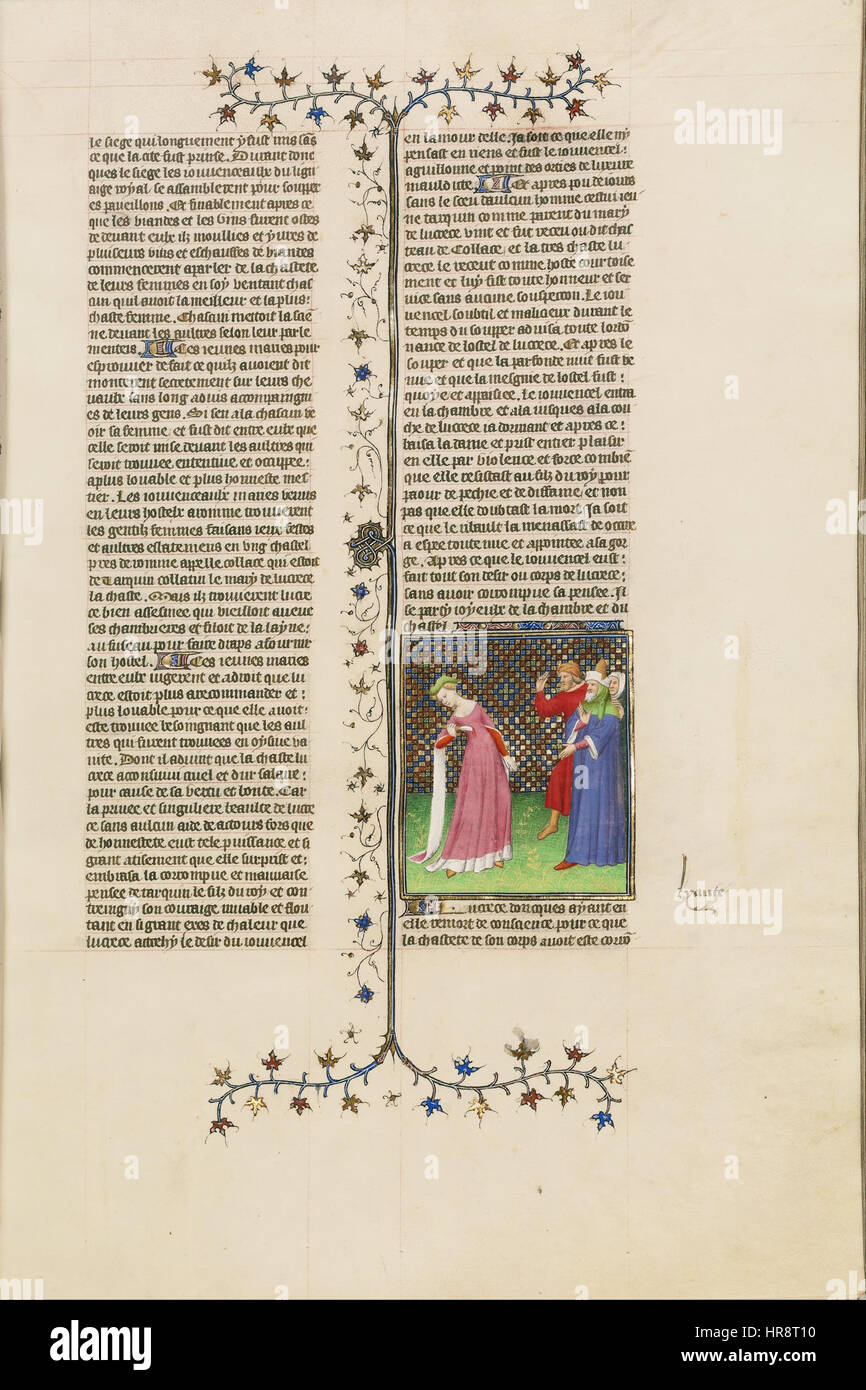 le siege qui longuement y fust mis sãs
ce que la cite fust prinse. Durant donc
ques le siege les iouvenceaulx du lign
aige royal se assamblerent pour soupper
es paveillons. Et finablement apres ce
que les viandes et les vins furent ostes
de devant eulx ilz moullies et yvres de
pluiseurs vins et eschauffes de viandes
commencerent aparler de la chastete
de leurs femmes en soy ventant chas
cun quil avoit la meilleur et la plus
chaste femme. Chascun mettoit la siẽ
ne devant les aultres selon leur parle
menters. Ces ieunes maries pour
esprouver de fait ce quilz avoient dit
monterent secretement sur leurs che
vaulx sans long advis acompaingni
es de leurs gens. Si sen ala chascun ve
oir sa femme et fust dit entre eulx que
celle seroit mise devant les aultres qui
seroit trouvee ententive et occuppee
a plus lovable et plus honneste mes
tier. Les iouvenceaulx maries venus
en leurs hostelx a romme trouverent
les gentilz femmes faisans ieux festes
et aultres esbatemens en ung chastel
pres de romme appelle collace qui estoit
de Tarquin collatin le mary de lucrece
la chaste. Mais ilz trouverent lucre
ce bien assesmee qui vieilloit avecque
ses chambrieres et filoit de la layne
au fuseau pour faire draps a fournir
son hostel. Ces ieunes maries
entre eulx iugerent et adroit que lu
crece estoit plus a recommander et
plus lovable pour ce que elle avoit
este trouvee besoingnant que les aul
tres qui furent trouvees en oysive va
nite. Dont il advint que la chaste lu
crece aconsuivi cruel et dur salaire
pour cause de sa vertu et bonte. Car
la privee et singuliere beaulte de lucre
ce sans aulcun aide de actours fors que
de honnestete eust tele puissance et si
grant atisement que elle surprist et
embrasa la corrompue et mauvaise
pensee de tarquin le filz du roy et con
treingny son couraige muable et flou
tant en si grant exces de chaleur que
lucrece actrehy le desir du iouvencel
en lamour delle. Ja soit ce que elle ny
pensast en riens et fust le iouvencel
aguillonne et point des orties de luxure
mauldicte. Et apres pou de iours
sans le sceu daulcun homme cestui ieu
ne tarquin comme parent du mary
de lucrece vint et fut receu ou dit chas
teau de Collace, et la tres chaste lu
crece le receut comme hoste courtoise
ment et luy fist toute honneur et ser
vice sans aucune souspecon. Le iou
vencel soubtil et malicieux durant le
temps du soupper advisa toute lordõ
nance de lostel de lucrece. Et apres le
souper et que la parfonde nuit fust ve
nue et que la mesgnie de lostel fust
quoye et appaisiee. Le iouvencel entra
en la chambre et ala iusques a la cou
che de lucrece ia dormant et apres ce
baisa la dame et prist entier plaisir
en elle par violence et force combiẽ
que elle resistast au filz du roy pour
paour de pechie et de diffame et non
pas que elle doubtast la mort. Ja soit
ce que le ribault la menassast de occire
a espee toute nue et appointee a sa gor
ge. Apres ce que le iouvencel eust
fait tout son desir ou corps de lucrece
sans avoir corrompue sa pensee. Il
se party ioyeulx de la chambre et du
chastel
Lucrece doncques ayant en
elle remort de conscience pour ce que
la chastete de son corps avoit este corrõ
alamy
alamy stock photo
HR8T10
www.alamy.com